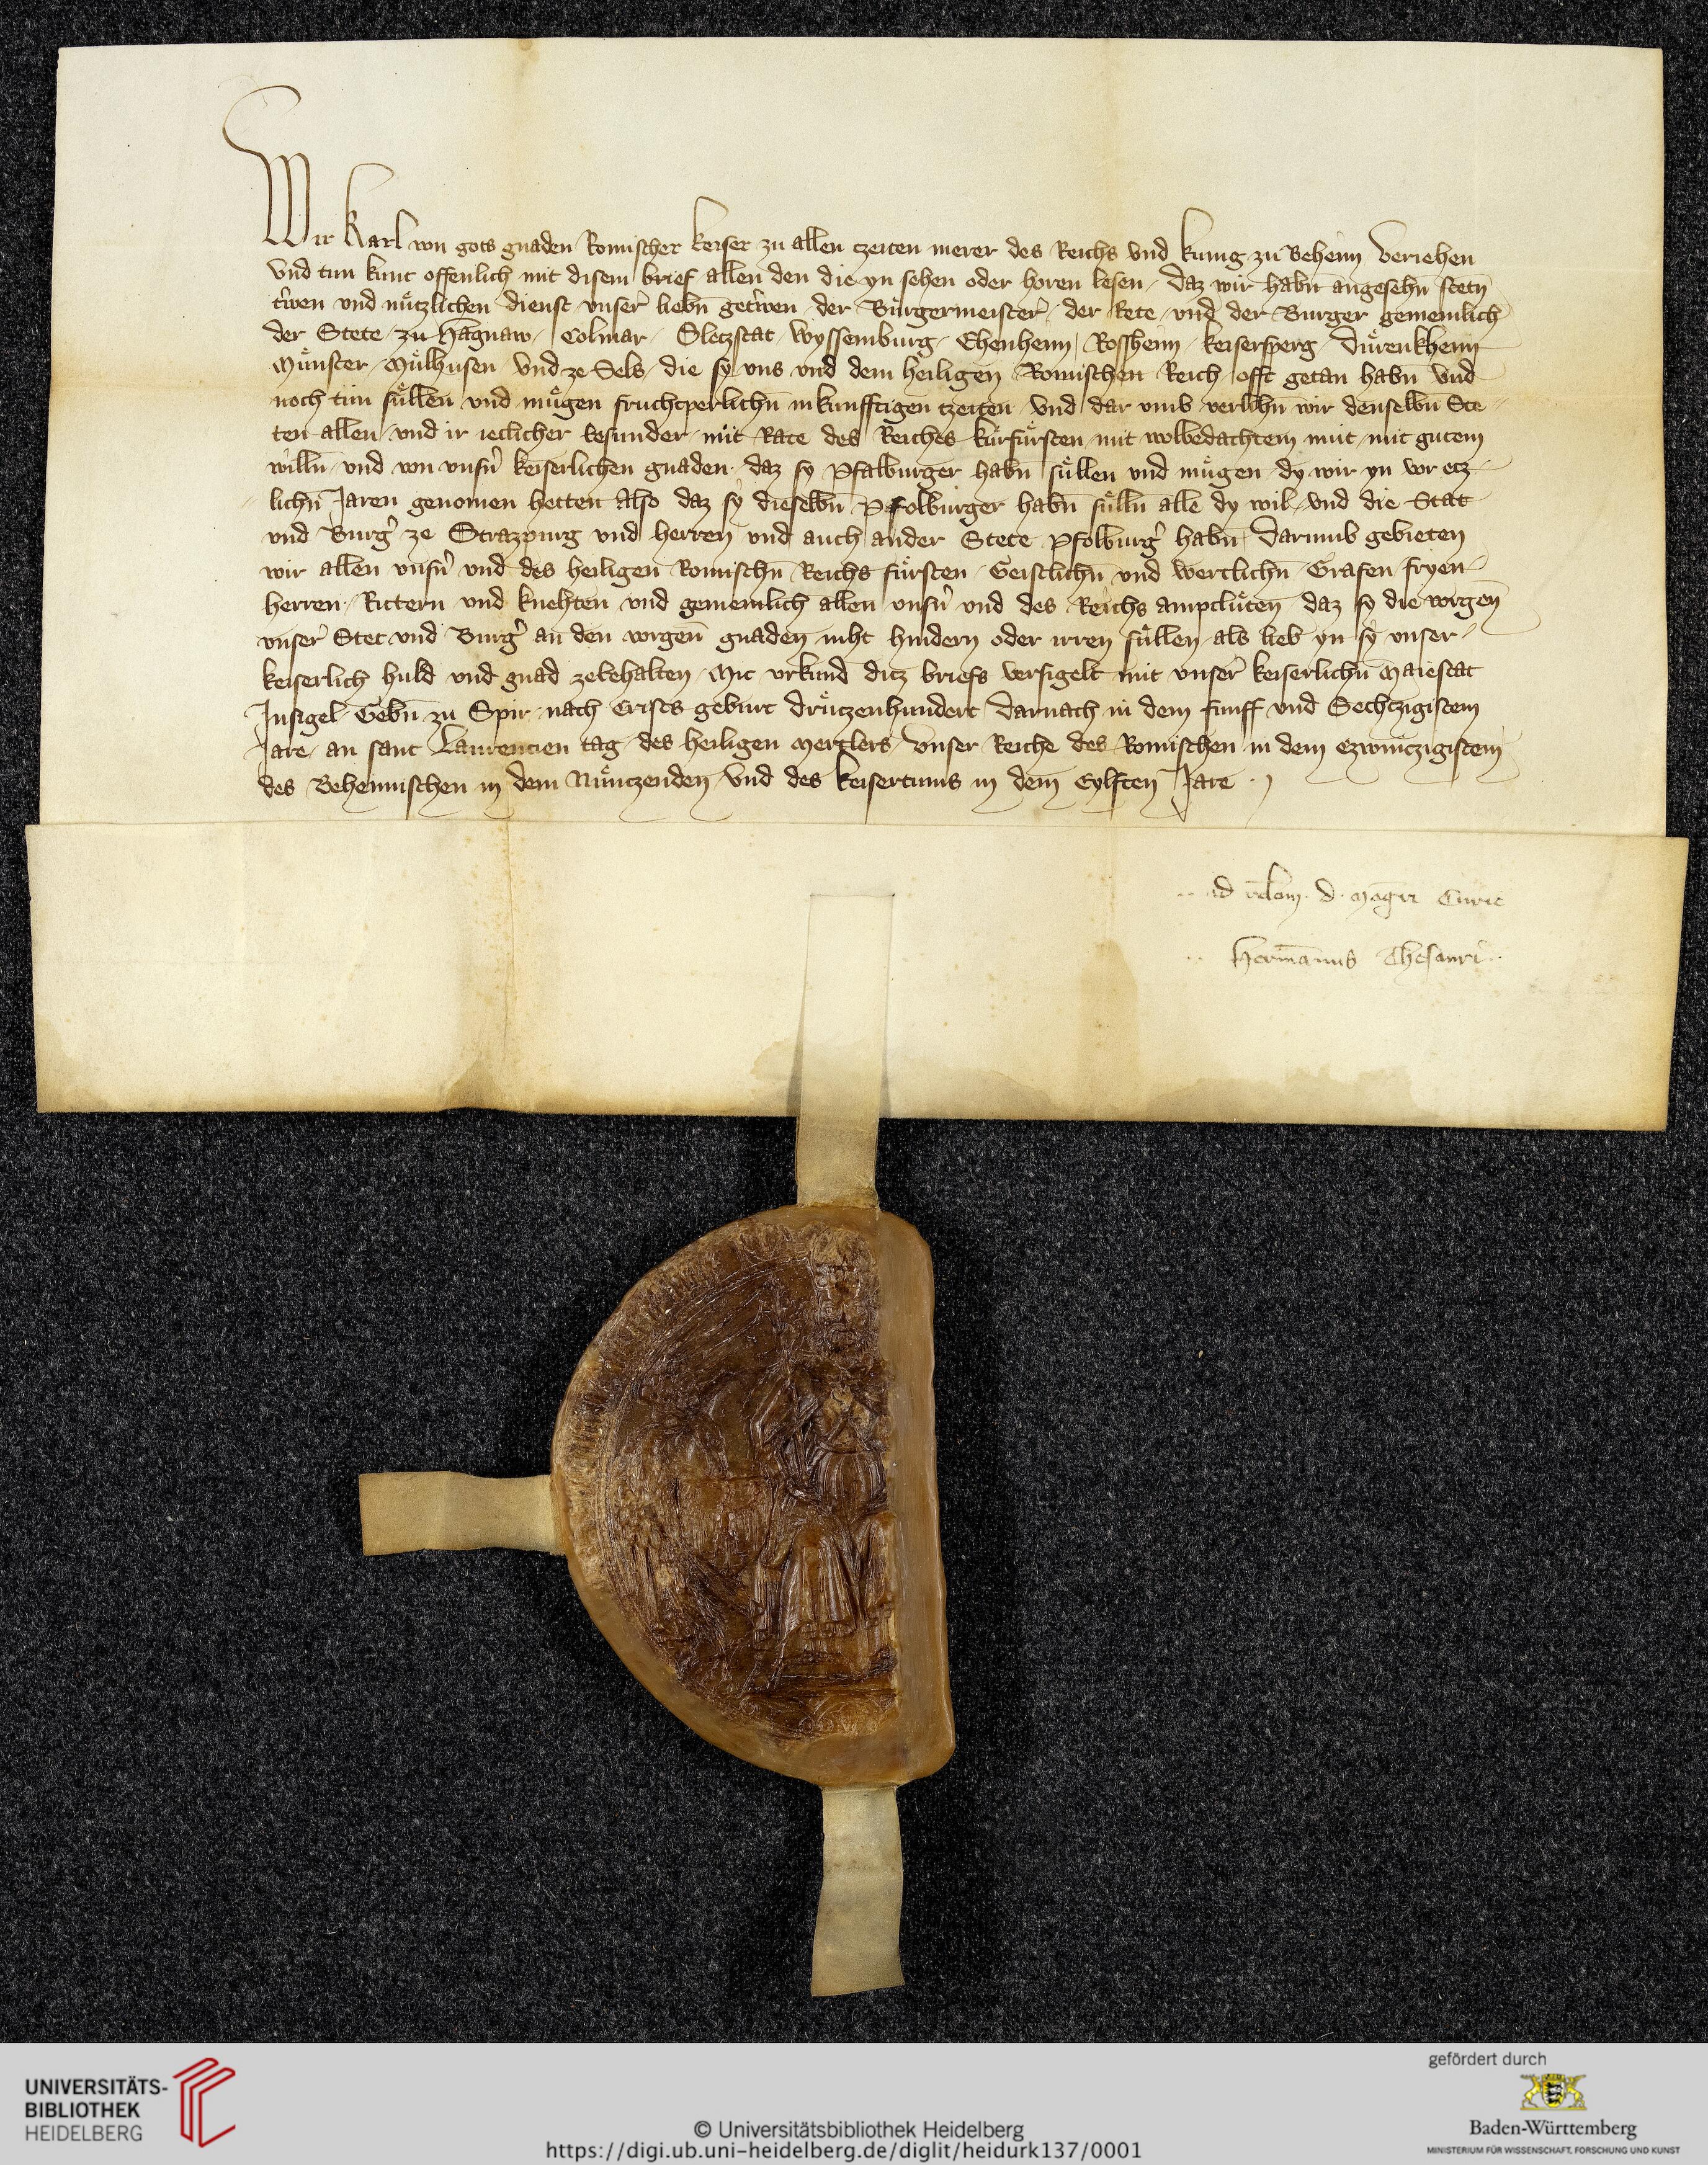 Wir Karl von gots gnaden Romischer keiser zu allen tzeiten merer des Reichs vnd kunig zu Beheim Veriehen
vnd tun kunt offenlich mit disem brief allen den die yn sehen oder horen lesen / daz wir habn̄ angesehn̄ stetn̄
trwen vnd nuͤtzlichen dienst vnser liebn̄ getrwen der Bürgermeister / der Rete / vnd der Burger gemeinlich
der Stete zu Hagnaw / Colmar / Sletzstat / Wyssemburg / Ehenheim / Rossheim / keisersperg / Duͤrenkheim
Muͤnster / Muͤlhusen vnd ze Sels / die sy vns vnd dem heiligen Romischen Reich offt getan habn̄ vnd
noch tun suͤllen vnd muͤgen fruchtperlichn̄ in kunfftigen tzeiten / vnd dar vmb verlihn̄ wir denselbn̄ Ste-
ten allen vnd ir ieclicher besunder mit Rate des Reiches kurfuͤrsten mit wolbedachtem mut / mit gutem
willn̄ / vnd von vnsn̄ keiserlichen gnaden / daz sy Pfalburger habn̄ suͤllen vnd muͤgen / dy wir yn vor etz-
lichn̄ Jaren genomen hetten Also daz sy dieselbn̄ Pfolburger habn̄ suͤlln̄ alle dy wil / vnd die Stat
vnd Burg̾ ze Strazpurg vnd herren vnd auch ander Stete Pfolburg̾ habn̄ / Darumb gebieten
wir allen vnsn̄ vnd des heiligen Romischn̄ Reichs fuͤrsten / Geistlichn̄ vnd wertlichn̄ / Grafen fryen-
herren / Rittern vnd knehten vnd gemeinlich allen vnsn̄ vnd des Reichs ampcluͤten daz sy die vorgen̄
vnser Stet vnd Burg̾ an den vorgen̄ gnaden niht hindern oder irren suͤllen als lieb yn sy vnser
keiserlich huld vnd gnad zebehalten / Mit vrkund ditz briefs versigelt mit vnser keiserlichn̄ Maiestat
Jnsigel / Gebn̄ zu Spir nach Crists geburt druͤtzenhundert Darnach in dem funff vnd Sechtzigistem
Jare / an sant Laurencien tag des heiligen Mertlers / vnser Reiche des Romischen in dem czweinczigistem
des Behemischen in dem Nuͤntzenden vnd des keisertums in dem Eylften Jare
.. ad relom̄ . d . magr̄i Curie
.. Hermānus Thesaurͬ ..
UNIVERSITÄTS-
BIBLIOTHEK
HEIDELBERG
© Universitätsbibliothek Heidelberg
https://digi.ub.uni-heidelberg.de/diglit/heidurk137/0001
gefördert durch
Baden-Württemberg
MINISTERIUM FÜR WISSENSCHAFT, FORSCHUNG UND KUNST